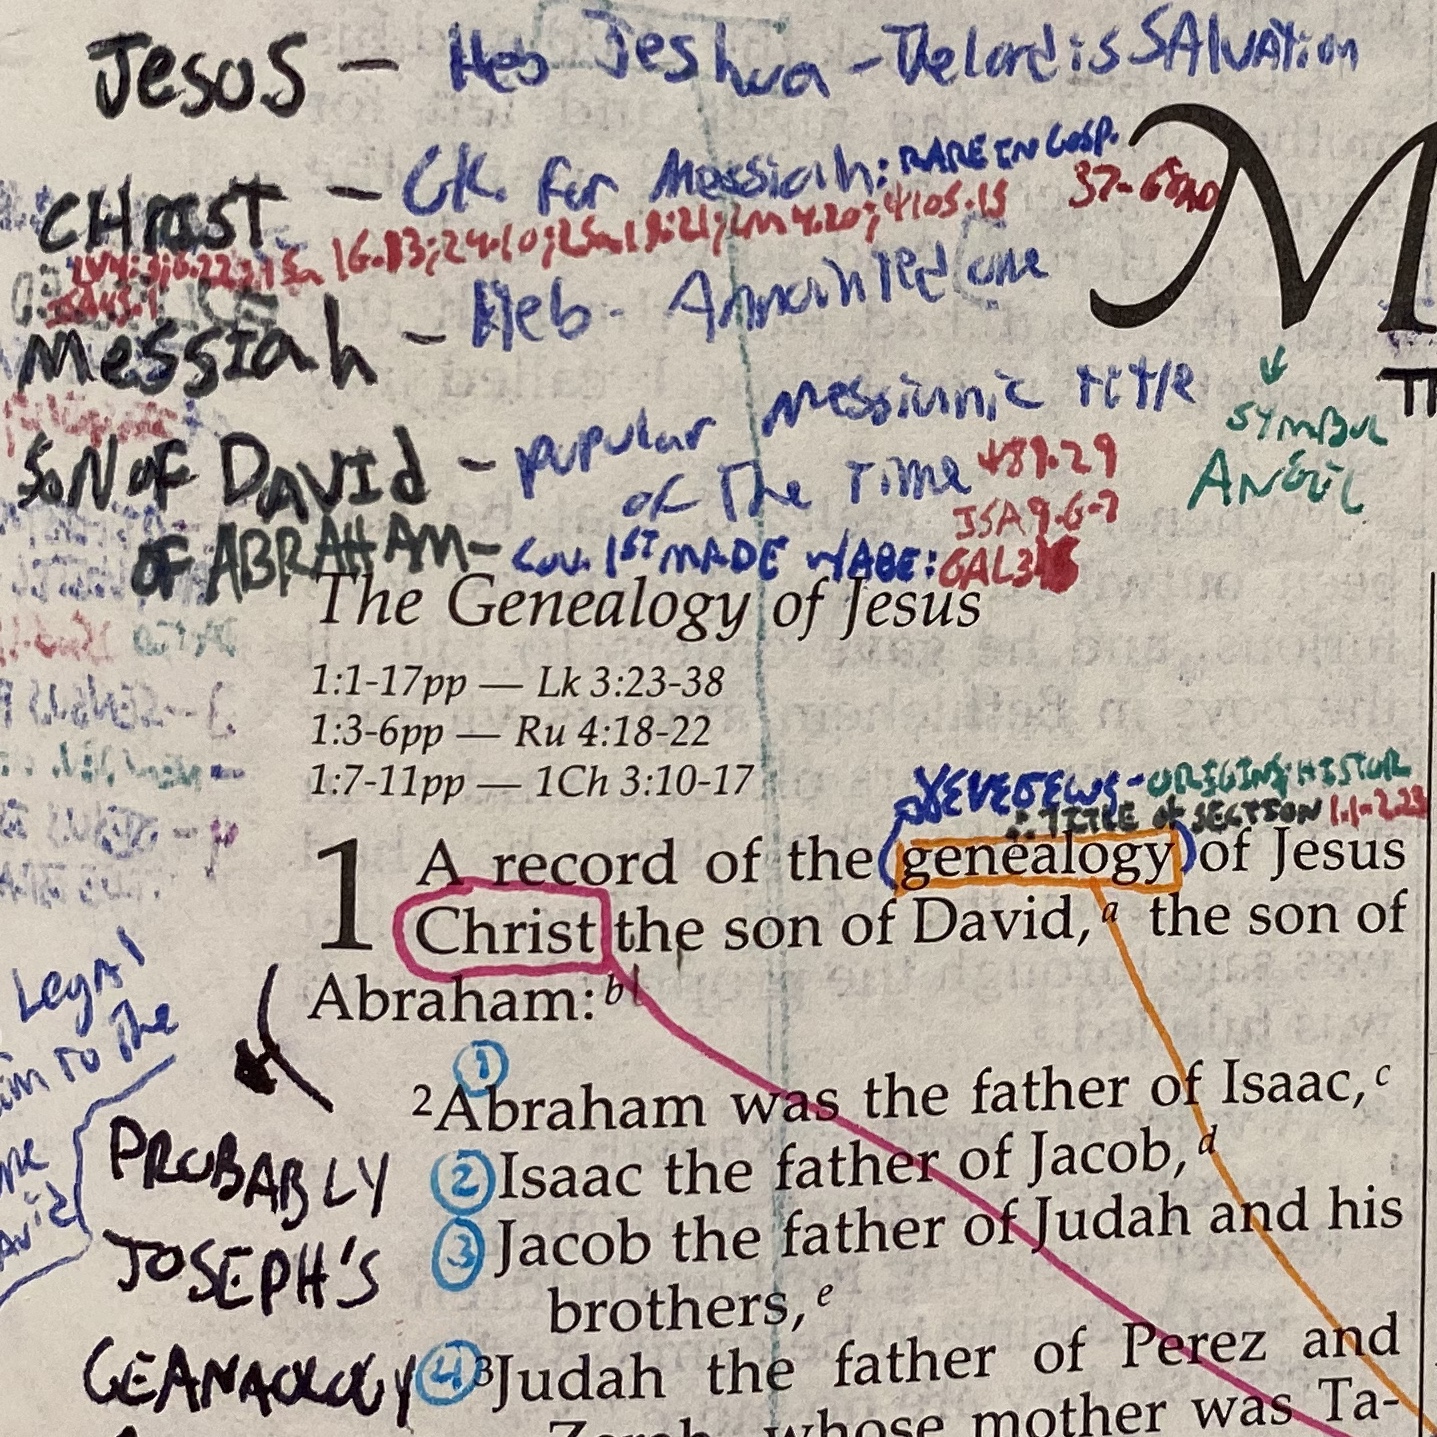 JESUS – Heb Jeshwa – The Lord is SAlvAtion
CHRIST – GK. for Messiah: RARE IN GOSP.
16.13; 24.10; 2Sam 19:21; LM 4.20; ψ105.15
37-68AD
ISA45.1
M
Messiah – Heb - Annointed one
SON OF DAVId – popular messiannic title
of The Time ψ89.29
ISA 9.6-7
↓
SYMBOL
ANGEL
OF ABRAHAM – COV. 1ST MADE W/ABE: GAL3
The Genealogy of Jesus
1:1-17pp — Lk 3:23-38
1:3-6pp — Ru 4:18-22
1:7-11pp — 1Ch 3:10-17
γενεσεως - ORIGIN; HISTOR
∴ TITLE of SECTION 1.1-2.23
1 A record of the (genealogy) of Jesus
Christ the son of David,a the son of
Abraham:b
Legal
to the
①
2Abraham was the father of Isaac,c
② Isaac the father of Jacob,d
③ Jacob the father of Judah and his
brothers,e
PROBABLY
JOSEPH'S
GEANAOLOGY
④ 3Judah the father of Perez and
Zerah, whose mother was Ta-